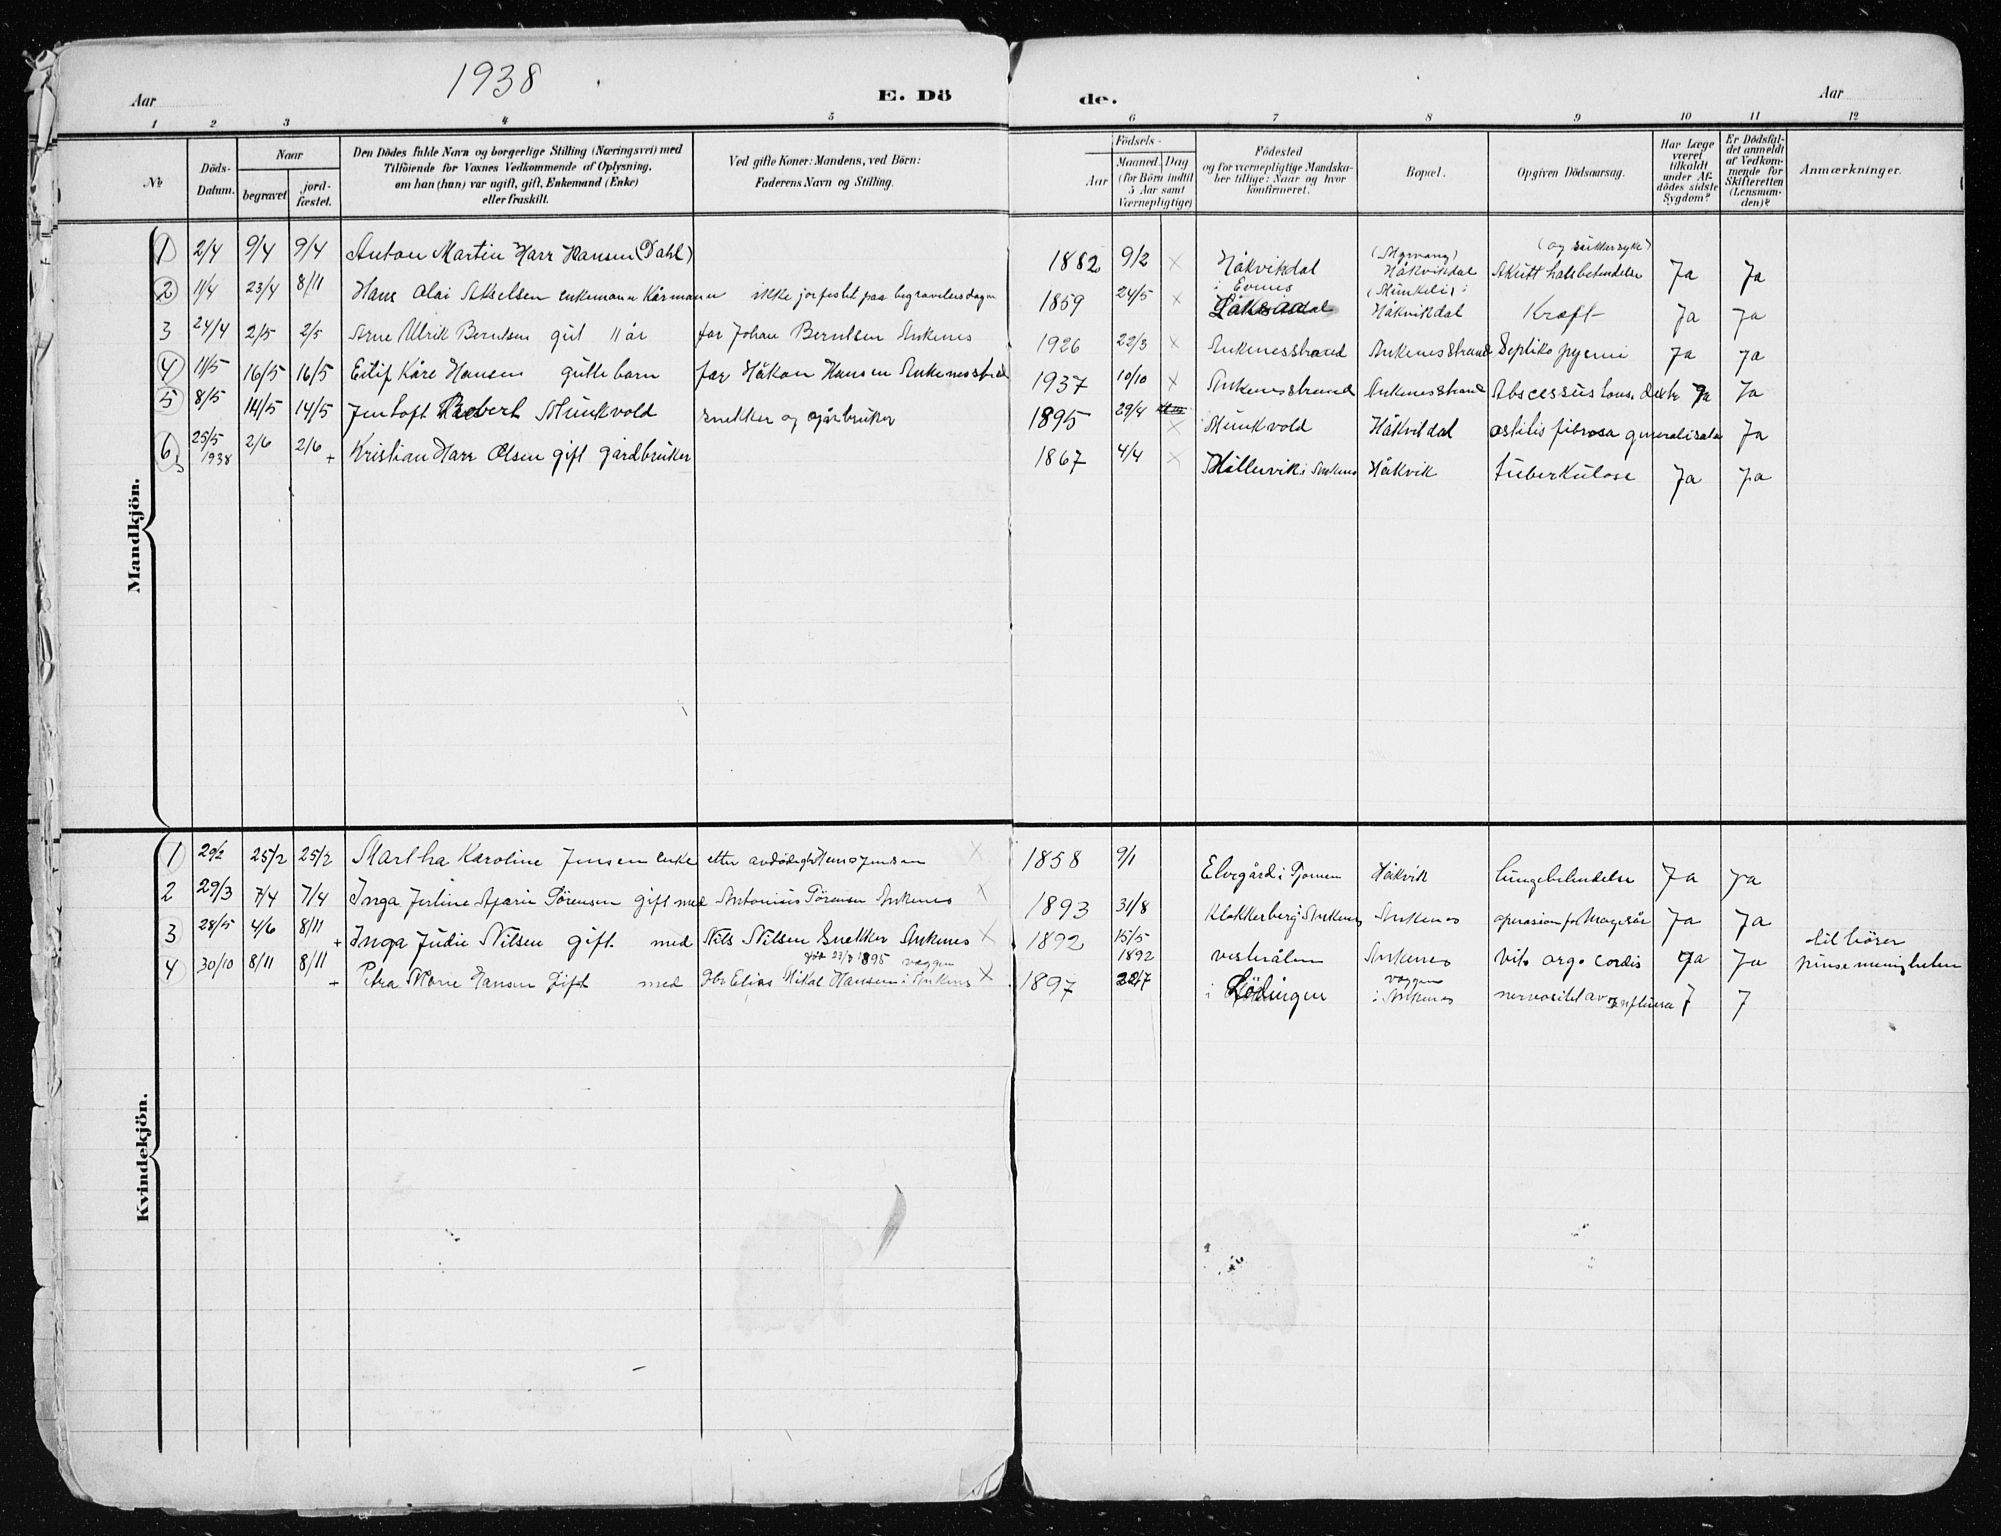 1938
Aar
E. Dö
de.
Aar
1 2 3 4 5 6 7 8 9 10 11 12
No
Döds-
Datum.
Naar
begravet
jord-
fæstet.
Den Dödes fulde Navn og borgerlige Stilling (Næringsvei) med
Tilföiende for Voxnes Vedkommende af Oplysning,
om han (hun) var ugift, gift, Enkemand (Enke)
eller fraskilt.
Ved gifte Koner: Mandens, ved Börn:
Faderens Navn og Stilling.
Födsels-
Aar
Maaned. Dag
(for Börn indtil
5 Aar samt
Værnepligtige)
Födested
og for værnepligtige Mandska-
ber tillige: Naar og hvor
konfirmeret.
Bopæl.
Opgiven Dödsaarsag.
Har Læge
været
tilkaldt
under Af-
dödes sidste
Sygdom?
Er Dödsfal-
det anmeldt
af Vedkom-
mende for
Skifteretten
(Lensman-
den)?
Anmærkninger.
Mandkjön.
1 2/4 9/4 9/4 Anton Martin Harr Hansen (Dahl) 1882 9/2 x Håkvikdal (Myrvang) Håkvikdal Akutt halsbetendelse (og sukkersyke) Ja Ja
2 11/4 23/4 8/11 Hans Olai Akselsen enkemann Kårmann ikke jorfestet paa begravelsesdagen 1859 24/5 x i Evenes (Munkeli) Håkvikdal Kræft Ja Ja
3 24/4 2/5 2/5 Arne Ulrik Berntsen gut 11 år far Johan Berntsen Ankenes 1926 22/3 x Ankenesstrand Ankenesstrand Septiko pyemi Ja Ja
4 11/5 16/5 16/5 Eilif Kåre Hansen guttebarn far Håkon Hansen Ankenesstrd 1937 10/10 x Ankenesstrand Ankenesstrand Abscessus dextr Ja Ja
5 8/5 14/5 14/5 Jentoft Robert Munkvold snekker og gårbruker 1895 29/4 x Munkvold Håkvikdal ostitis fibrosa generalisata Ja
6 25/5 1938 2/6 2/6 + Kristian Harr Olsen gift gårdbruker 1867 4/4 x Hållevik i Ankenes Håkvik tuberkulose Ja Ja
Kvindekjön.
1 20/2 25/2 25/2 Martha Karoline Jensen enke etter avdöde Hans Jensen x 1858 9/1 Elvegård i Håkvik lungebetendelse Ja Ja
2 29/3 7/4 7/4 Inga Serine Sörensen gift med Antonius Sörensen Ankenes x 1893 31/8 Klokkerberg i Ankenes Ankenes operasjon for Magesår Ja Ja
3 28/5 4/6 8/11 + Inga Judie Nilsen gift med Nils Nilsen Snekker Ankenes x 1892 15/5 1892 vesterålen Ankenes Vit. org. cordis Ja Ja til hörer pinsemenigheten
4 30/10 8/11 8/11 + Petra Marie Hansen Gift med Gbr Elias Mikal Hansen i Ankenes född 23/8 1895 vaggen x 1897 22/7 i Lödingen vaggen i Ankenes nervøsitet av influensa J J